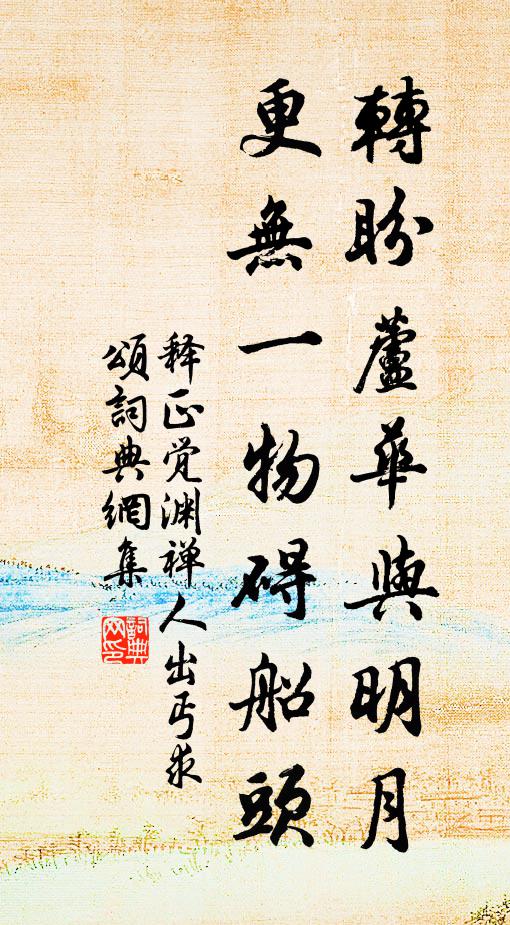 轉盼蘆華與明月
更無一物碍船頭
释正觉渊禅人出丐求
頌詞典網集
詞典網印